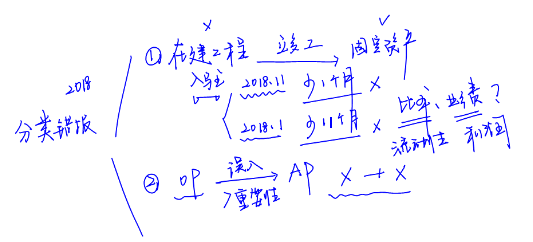 2018
分类错报
① 在建工程 × 竣工 → 固定资产 ✓
入马主
2018.11 少1个月 ×
2018.1 少11个月 ×
比率、业绩？
流动性 利润
② OP 误入 → AP × → ×
>重要性